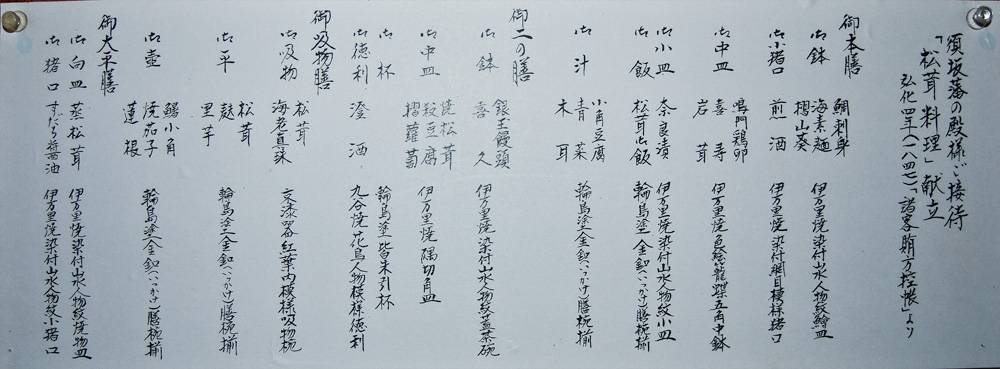 須坂藩の殿様ご接待
「松茸料理」献立
弘化四年(一八四七)「諸客賄方控帳」より
御本膳
御鉢 鯛刺身 海素麺 摺山葵 伊万里焼染付山水人物紋鱠皿
御小猪口 煎酒 伊万里焼染付網目模様猪口
御中皿 鳴門鶏卵 喜寿 岩茸 伊万里焼色絵龍蝶五角中鉢
御小皿 奈良漬 伊万里焼染付山水人物紋小皿
御飯 松茸御飯 輪島塗金釦(いっかけ)膳椀揃
御汁 小角豆腐 青菜 木耳 輪島塗金釦(いっかけ)膳椀揃
御二の膳
御鉢 銀玉饅頭 喜久 伊万里焼染付山水人物紋蓋茶碗
御中皿 焼松茸 豆腐 摺蘿蔔 伊万里焼隅切角皿
御杯 輪島塗皆朱引杯
御徳利 澄酒 九谷焼花鳥人物模様徳利
御吸物膳
御吸物 松茸 海老真珠 漆器紅葉内模様吸物椀
御平 松茸 麩 里芋 輪島塗金釦(いっかけ)膳椀揃
御壷 鰡小角 焼茄子 蓮根 輪島塗金釦(いっかけ)膳椀揃
御大平膳
御向皿 蒸松茸 伊万里焼染付山水人物紋焼物皿
御猪口 すだち醤油 伊万里焼染付山水人物紋小猪口